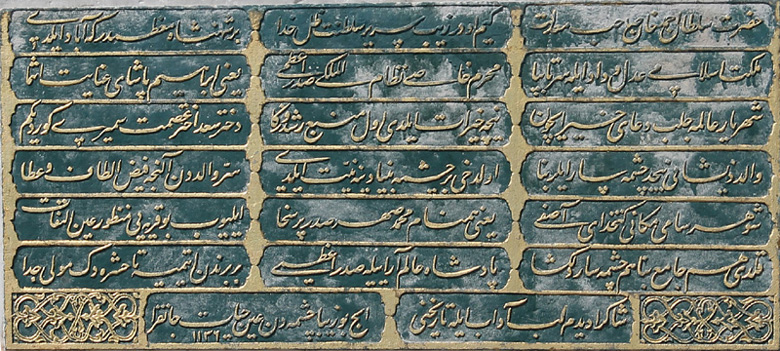 حضرت سلطان احمد خان صاحب معدلت
کیم وجودی زیب سریر سلطنت ظل خدا
بر شهنشاه معظمدر که آباد ایلدی
عدل و داد ایله سرتابپا
محرم خاص نظام الملکی صدر اعظمی
یعنی ابراهیم پاشای عنایت انتما
شهریار عالمه جلب دعای خیر ایچون
نیجه خیرات ایلدی اول منبع رشد و ذکا
دختر سعد اختر عصمت کوردیکم
والد ذیشانی نیجه چشمه سار ایلر بنا
اولدخی بر چشمه بنیادینه نیت ایلدی
سر والددن آلنجه فیض الطاف و عطا
شوهر سامی مکانی کتخدای آصفی
یعنی همنام محمد صهر صدر پر سخا
ایلیوب بو قریه یی منظور عین التفات
قلدی هم جامع بنا هم چشمه سار دلکشا
پادشاه عالم آرا ایله صدر اعظمی
بربرندن ایتمیه تا حشره دک مولی جدا
شاکرا دیدم لب آداب ایله تاریخنی
ایچ بو زیبا چشمه دن عین حیات جانفزا ۱۱۳۶